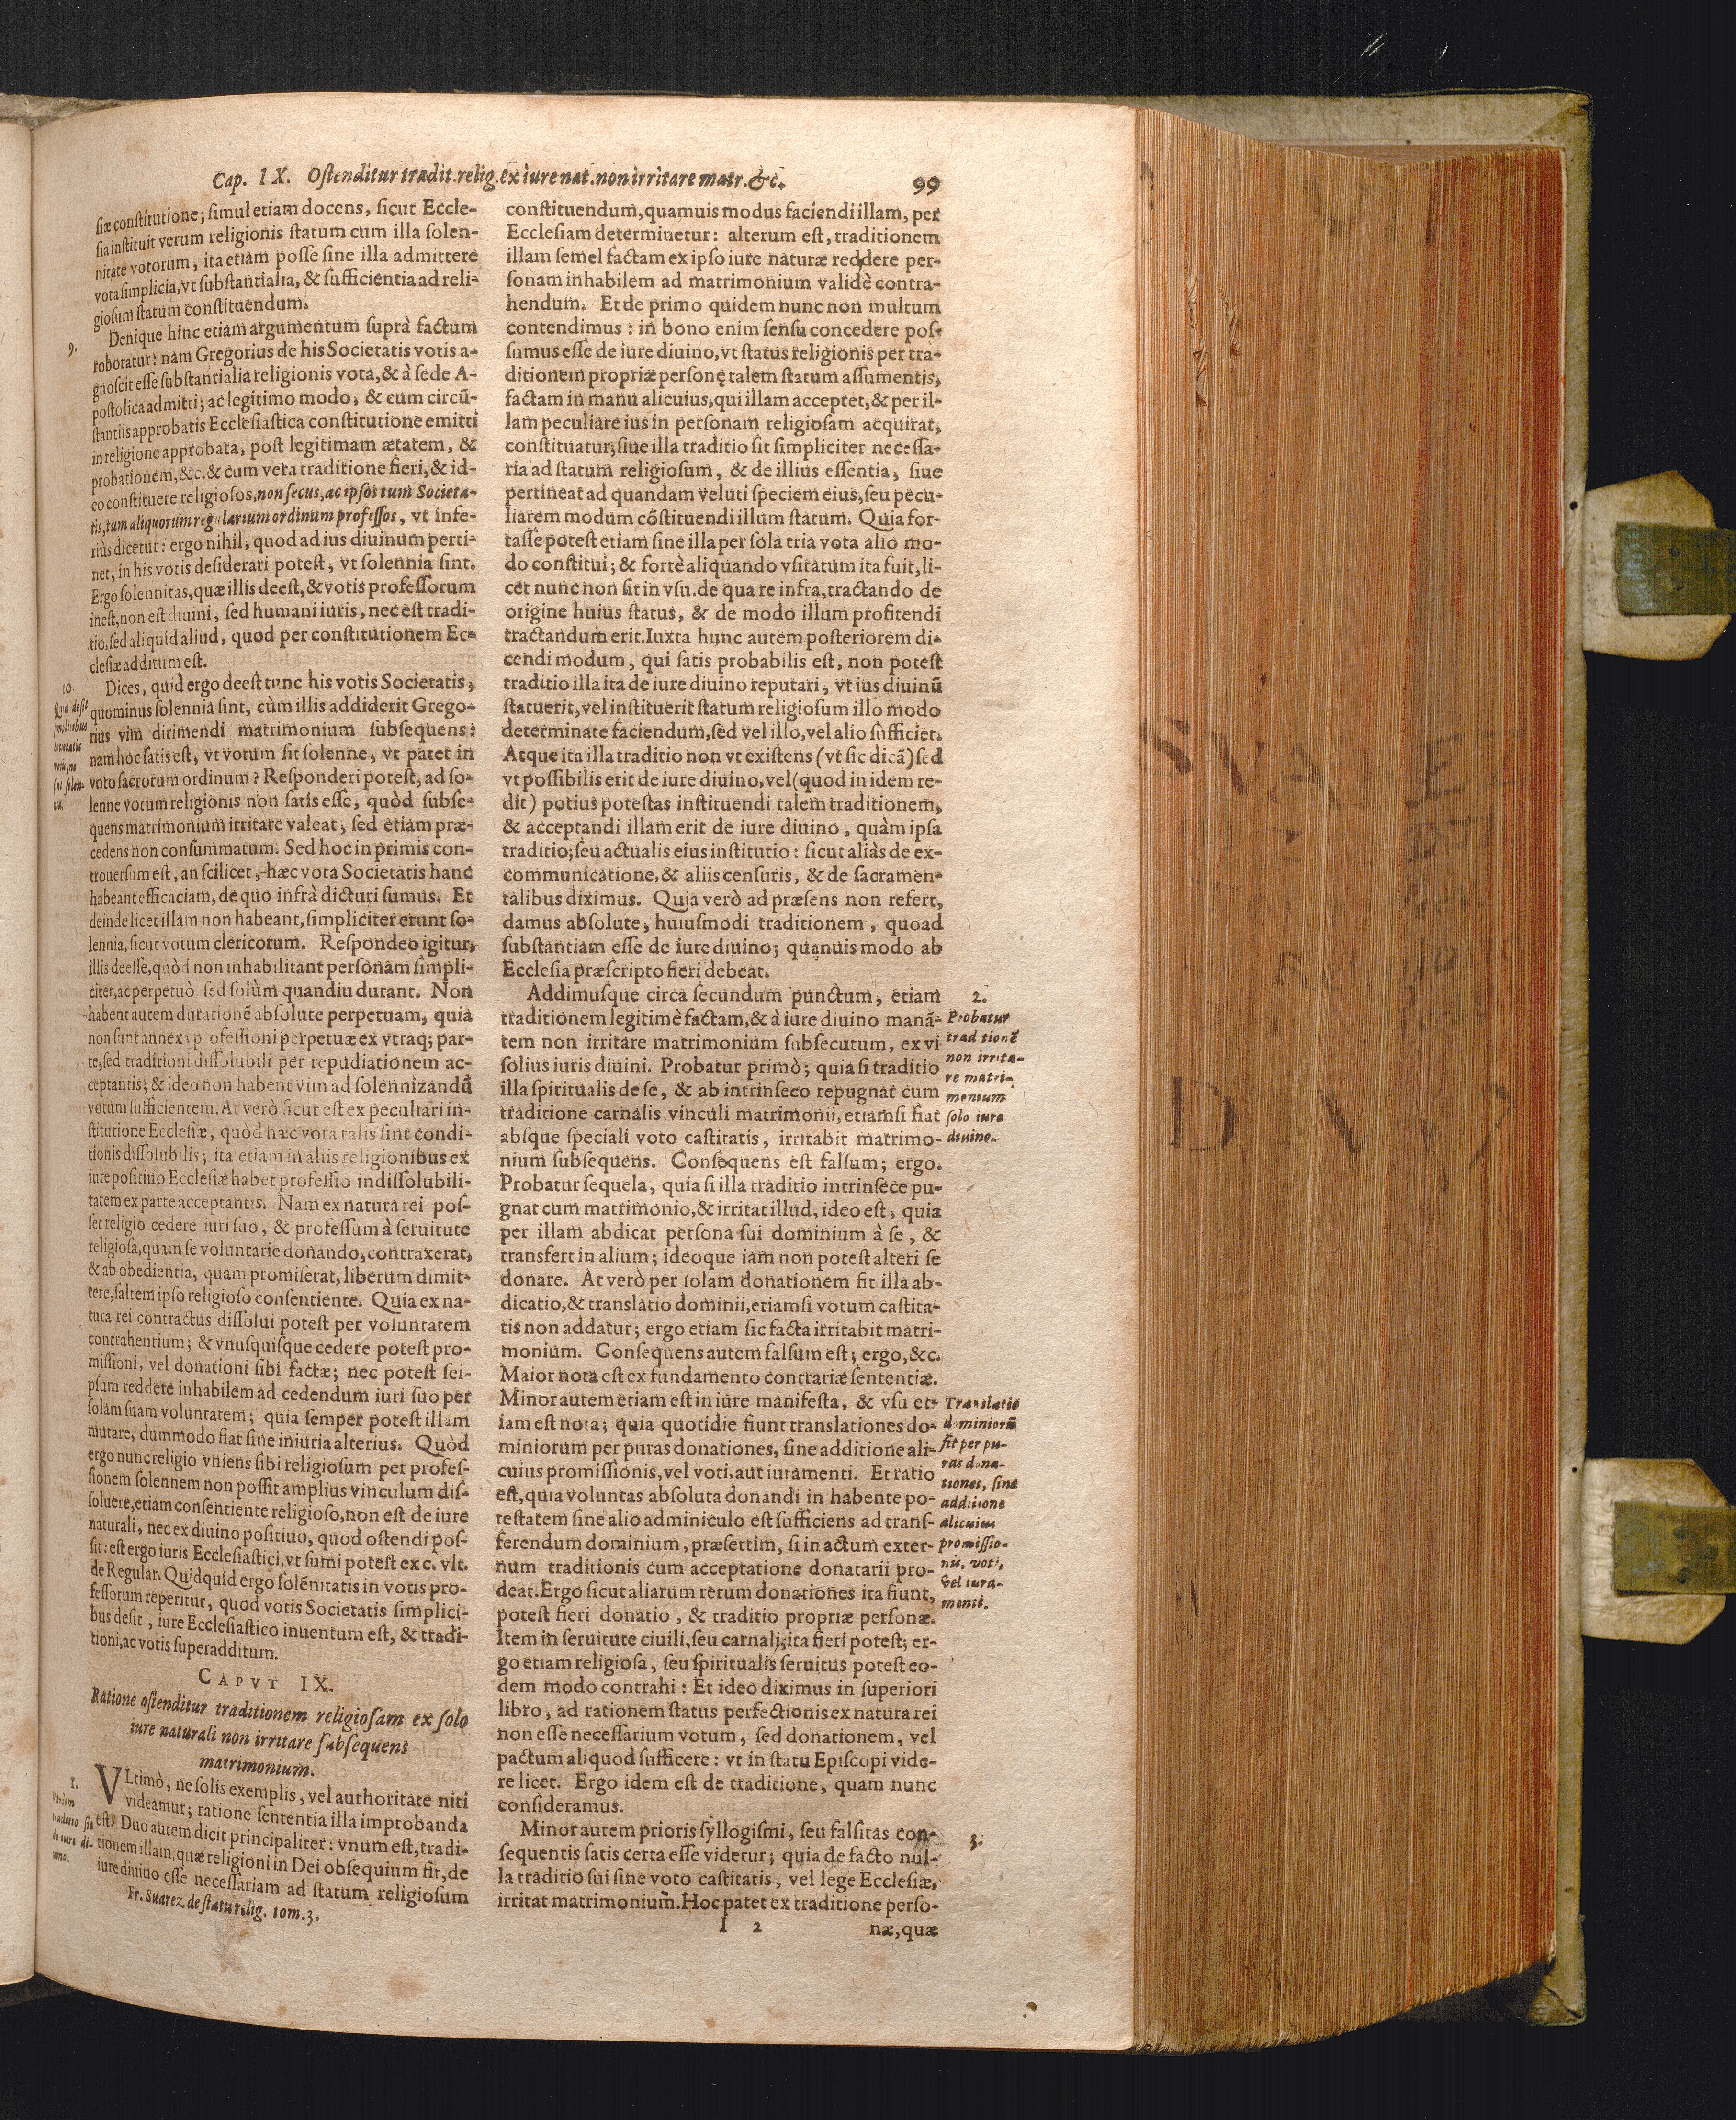 Cap. IX. Ostenditur tradit. relig. ex iure nat. non irritare matr. &c.
99
siæ constitutione; simul etiam docens, sicut Eccle-
sia instituit verum religionis statum cum illa solen-
nitate votorum, ita etiam posse sine illa admittere
vota simplicia, vt substantialia, & sufficientia ad reli-
giosum statum constituendum.
9.
Denique hinc etiam argumentum suprà factum
roboratur: nam Gregorius de his Societatis votis a-
gnoscit esse substantialia religionis vota, & à sede A-
postolica admitti; ac legitimo modo, & cum circũ-
stantiis approbatis Ecclesiastica constitutione emitti
in religione approbata, post legitimam ætatem, &
probationem, &c. & cum vera traditione fieri, & id-
eo constituere religiosos, non secus, ac ipsos tum Societa-
tis, tum aliquorum regularium ordinum professos, vt infe-
riùs dicetur: ergo nihil, quod ad ius diuinum perti-
net, in his votis desiderari potest, vt solennia sint.
Ergo solennitas, quæ illis deest, & votis professorum
inest, non est diuini, sed humani iuris, nec est tradi-
tio, sed aliquid aliud, quod per constitutionem Ec-
clesiæ additum est.
10.
Dices, quid ergo deest tunc his votis Societatis,
quominus solennia sint, cùm illis addiderit Grego-
rius vim dirimendi matrimonium subsequens:
nam hoc satis est, vt votum sit solenne, vt patet in
voto sacrorum ordinum? Responderi potest, ad so-
lenne votum religionis non satis esse, quòd subse-
quens matrimonium irritare valeat, sed etiam præ-
cedens non consummatum. Sed hoc in primis con-
trouersum est, an scilicet, hæc vota Societatis hanc
habeant efficaciam, de quo infrà dicturi sumus. Et
deinde licet illam non habeant, simpliciter erunt so-
lennia, sicut votum clericorum. Respondeo igitur,
illis deesse, quòd non inhabilitant personam simpli-
citer, ac perpetuò sed solùm quandiu durant. Non
habent autem durationẽ absolute perpetuam, quia
non sunt annexa professioni perpetuæ ex vtraq; par-
te, sed traditioni dissolubili per repudiationem ac-
ceptantis; & ideo non habent vim ad solennizandũ
votum sufficientem. At verò sicut est ex peculiari in-
stitutione Ecclesiæ, quòd hæc vota talis sint condi-
tionis dissolubilis; ita etiam in aliis religionibus ex
iure positiuo Ecclesiæ habet professio indissolubili-
tatem ex parte acceptantis. Nam ex natura rei pos-
set religio cedere iuri suo, & professum à seruitute
religiosa, quam se voluntarie donando, contraxerat,
& ab obedientia, quam promiserat, liberum dimit-
tere, saltem ipso religioso consentiente. Quia ex na-
tura rei contractus dissolui potest per voluntatem
contrahentium; & vnusquisque cedere potest pro-
missioni, vel donationi sibi factæ; nec potest sei-
psum reddere inhabilem ad cedendum iuri suo per
solam suam voluntatem; quia semper potest illam
mutare, dummodo fiat sine iniuria alterius. Quòd
ergo nunc religio vniens sibi religiosum per profes-
sionem solennem non possit amplius vinculum dis-
soluere, etiam consentiente religioso, non est de iure
naturali, nec ex diuino positiuo, quod ostendi pos-
sit: est ergo iuris Ecclesiastici, vt sumi potest ex c. vlt.
de Regular. Quidquid ergo solẽnitatis in votis pro-
fessorum reperitur, quod votis Societatis simplici-
bus desit, iure Ecclesiastico inuentum est, & tradi-
tioni, ac votis superadditum.
CAPVT IX.
Ratione ostenditur traditionem religiosam ex solo
iure naturali non irritare subsequens
matrimonium.
1.
Vtrum
traditio sit
de iure di-
uino.
VLtimò, ne solis exemplis, vel authoritate niti
videamur; ratione sententia illa improbanda
est. Duo autem dicit principaliter: vnum est, tradi-
tionem illam, quæ religioni in Dei obsequium fit, de
iure diuino esse necessariam ad statum religiosum
Fr. Suarez de statu relig. tom. 3.
constituendum, quamuis modus faciendi illam, per
Ecclesiam determinetur: alterum est, traditionem
illam semel factam ex ipso iure naturæ reddere per-
sonam inhabilem ad matrimonium validè contra-
hendum. Et de primo quidem nunc non multum
contendimus: in bono enim sensu concedere pos-
sumus esse de iure diuino, vt status religionis per tra-
ditionem propriæ personę talem statum assumentis,
factam in manu alicuius, qui illam acceptet, & per il-
lam peculiare ius in personam religiosam acquirat,
constituatur; siue illa traditio sit simpliciter necessa-
ria ad statum religiosum, & de illius essentia, siue
pertineat ad quandam veluti speciem eius, seu pecu-
liarem modum cõstituendi illum statum. Quia for-
tasse potest etiam sine illa per sola tria vota alio mo-
do constitui; & fortè aliquando vsitatum ita fuit, li-
cet nunc non sit in vsu. de qua re infra, tractando de
origine huius status, & de modo illum profitendi
tractandum erit. Iuxta hunc autem posteriorem di-
cendi modum, qui satis probabilis est, non potest
traditio illa ita de iure diuino reputari, vt ius diuinũ
statuerit, vel instituerit statum religiosum illo modo
determinate faciendum, sed vel illo, vel alio sufficiet.
Atque ita illa traditio non vt existens (vt sic dicã) sed
vt possibilis erit de iure diuino, vel (quod in idem re-
dit) potius potestas instituendi talem traditionem,
& acceptandi illam erit de iure diuino, quàm ipsa
traditio; seu actualis eius institutio: sicut aliàs de ex-
communicatione, & aliis censuris, & de sacramen-
talibus diximus. Quia verò ad præsens non refert,
damus absolute, huiusmodi traditionem, quoad
substantiam esse de iure diuino; quanuis modo ab
Ecclesia præscripto fieri debeat.
2.
Probatur
traditionẽ
non irrita-
re matri-
monium
solo iure
diuino.
Addimusque circa secundum punctum, etiam
traditionem legitimè factam, & à iure diuino manã-
tem non irritare matrimonium subsecutum, ex vi
solius iuris diuini. Probatur primò; quia si traditio
illa spiritualis de se, & ab intrinseco repugnat cum
traditione carnalis vinculi matrimonii, etiamsi fiat
absque speciali voto castitatis, irritabit matrimo-
nium subsequens. Consequens est falsum; ergo.
Probatur sequela, quia si illa traditio intrinsece pu-
gnat cum matrimonio, & irritat illud, ideo est, quia
per illam abdicat persona sui dominium à se, &
transfert in alium; ideoque iam non potest alteri se
donare. At verò per solam donationem fit illa ab-
dicatio, & translatio dominii, etiamsi votum castita-
tis non addatur; ergo etiam sic facta irritabit matri-
monium. Consequens autem falsum est; ergo, &c.
Maior nota est ex fundamento contrariæ sententiæ.
Minor autem etiam est in iure manifesta, & vsu et-
iam est nota; quia quotidie fiunt translationes do-
miniorum per puras donationes, sine additione ali-
cuius promissionis, vel voti, aut iuramenti. Et ratio
est, quia voluntas absoluta donandi in habente po-
testatem sine alio adminiculo est sufficiens ad trans-
ferendum dominium, præsertim, si in actum exter-
num traditionis cum acceptatione donatarii pro-
deat. Ergo sicut aliarum rerum donationes ita fiunt,
potest fieri donatio, & traditio propriæ personæ.
Item in seruitute ciuili, seu carnali, ita fieri potest; er-
go etiam religiosa, seu spiritualis seruitus potest eo-
dem modo contrahi: Et ideo diximus in superiori
libro, ad rationem status perfectionis ex natura rei
non esse necessarium votum, sed donationem, vel
pactum aliquod sufficere: vt in statu Episcopi vide-
re licet. Ergo idem est de traditione, quam nunc
consideramus.
Translatio
dominiorũ
fit per pu-
ras dona-
tiones, sine
additione
alicuius
promissio-
nis, voti,
vel iura-
menti.
3.
Minor autem prioris syllogismi, seu falsitas con-
sequentis satis certa esse videtur; quia de facto nul-
la traditio sui sine voto castitatis, vel lege Ecclesiæ,
irritat matrimonium. Hoc patet ex traditione perso-
I 2
næ, quæ